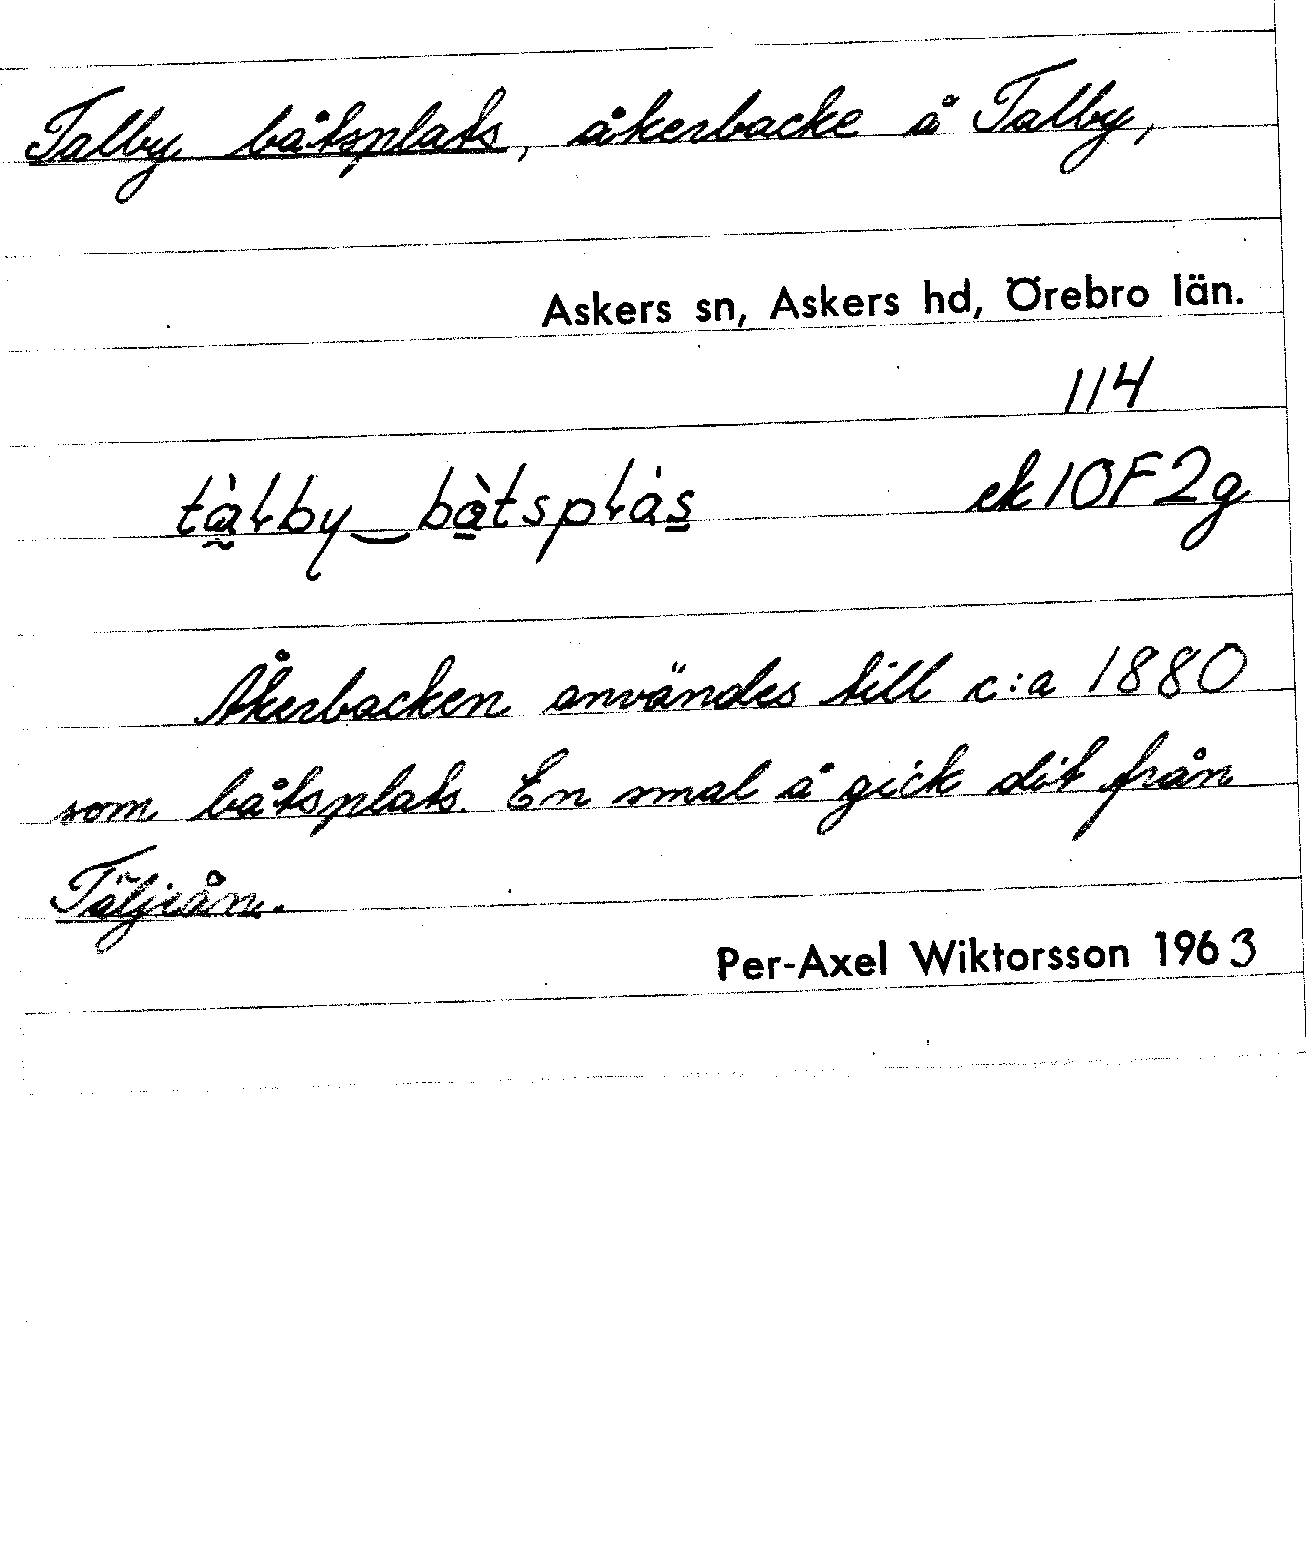 Talby båtsplats, åkerbacke å Talby,
Askers sn, Askers hd, Örebro län.
114
tàłby‿bàtsplàs ek 10F2g
Åkerbacken användes till c:a 1880
som båtsplats. En smal å gick dit från
Täljeån.
Per-Axel Wiktorsson 1963